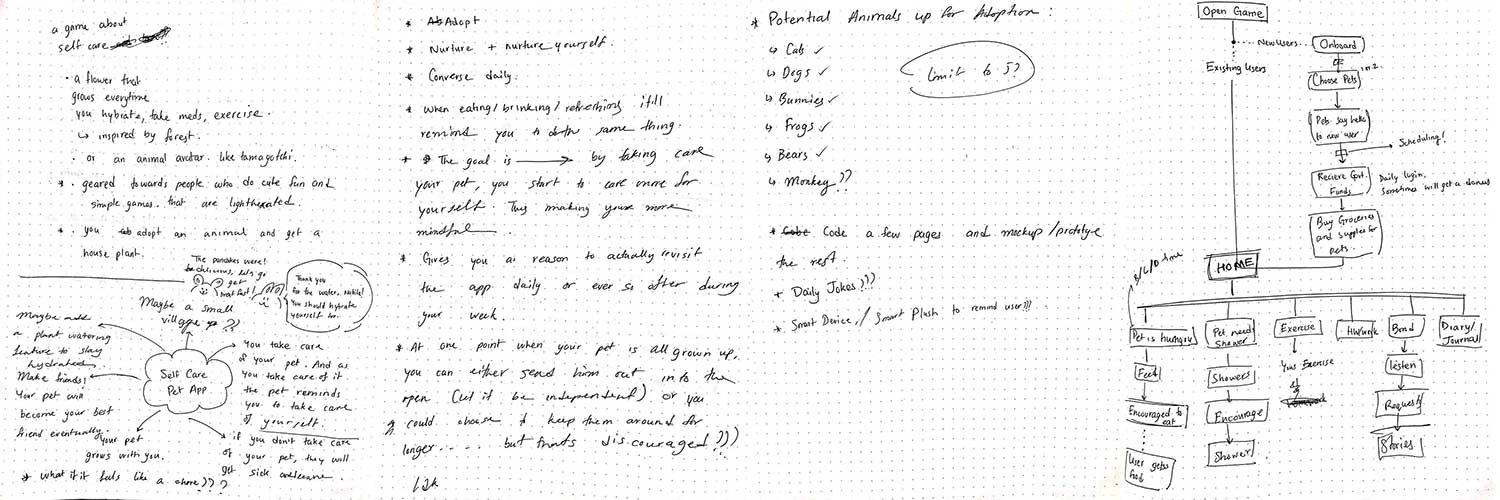 a game about
self care
· a flower that
grows everytime
you hybrate, take meds, exercise.
↳ inspired by forest.
· or an animal avatar. like tamagotchi.
* · geared towards people who do cute fun and
simple games. that are lighthearted.
* · you adopt an animal and get a
house plant.
The pancakes were
delicious, let's go
get
Thank you
for the water,
You should hybrate
yourself too.
Maybe a small
village ??
Maybe add
a plant watering
feature to stay
hydrated
Make friends!
Your pet will
become your best
friend eventually.
Self Care
Pet App
You take care
of your pet. And as
you take care of it
the pet reminds
you to take care
of yourself.
your pet
grows with you.
if you don't take care
of your pet, they will
get sick and leave.
* what if it feels like a chore?? ?
* Adopt
* Nurture + nurture yourself.
* Converse daily.
* when eating/drinking/refreshing it'll
remind you to do the same thing.
* The goal is → by taking care
your pet, you start to care more for
yourself. Thus making you more
mindful
* Gives you a reason to actually revisit
the app daily or ever so often during
your week.
* At one point when your pet is all grown up,
you can either send him out into the
open (let it be independent) or you
could choose to keep them around for
longer..... but that's discouraged???
* Potential Animals up for Adoption:
↳ Cats ✓
↳ Dogs ✓
↳ Bunnies ✓
↳ Frogs ✓
↳ Bears ✓
↳ Monkey??
Limit to 5?
* Code a few pages and mockup/prototype
the rest.
* Daily Jokes???
* Smart Device // Smart Plush to remind user!!!
Open Game
New Users... Onboard
Existing Users
Choose Pets 1 or 2
Pets say hello
to new user
Scheduling!
Recieve Gvt.
Funds
Daily login.
Sometimes will get a bonus
Buy Groceries
and supplies for
pets.
HOME
B/L/D time
Pet is hungry
Pet needs
Shower
Exercise
HW/work
Bond
Diary/
Journal
Feed
Showers
You Exercise
listen
Encouraged to
eat
Encourage
Requests
User gets
food
Shower
Stories